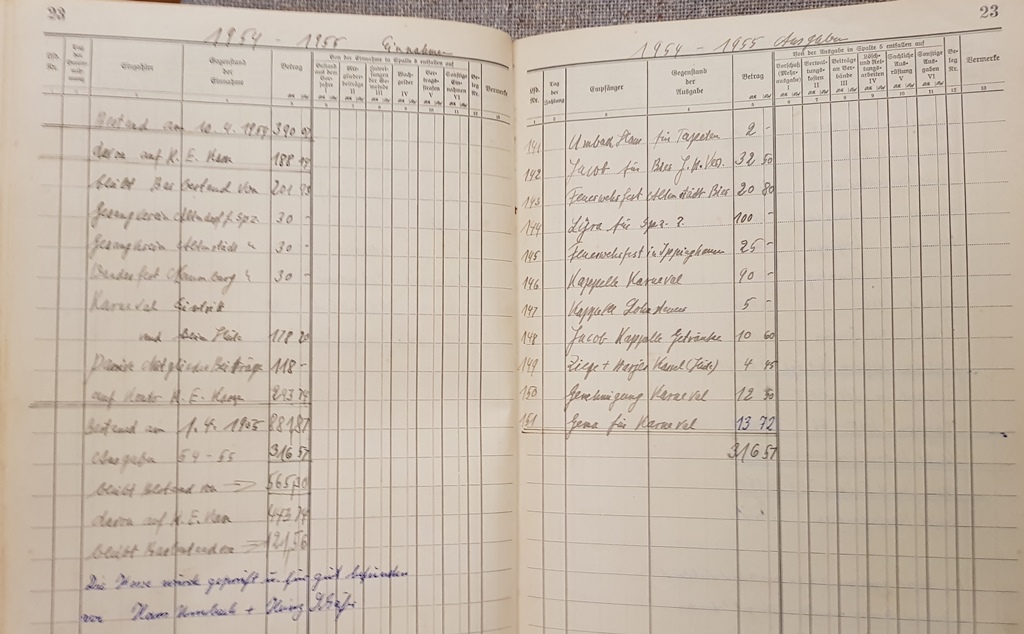 23
1954 - 1955 Einnahmen
Lfd. Nr.
Tag der Vereinnahmung
Einzahler
Gegenstand der Einnahme
Betrag
Von der Einnahme in Spalte 5 entfallen auf
Bestand aus dem Vorjahre I
Mitgliederbeiträge II
III
IV
V
Sonstige Einnahmen VI
Beleg Nr.
Vermerke
Bestand am 10.4.1954 390 97
davon auf K. E. Kasse 188 99
bleibt Bar bestand von 201 98
Gesangverein Altendorf f. Spz. 30 -
Gesangverein Altenstädt " 30 -
Naumburg " 30 -
Karneval Eintritt
und beim Hüte 178 20
Mitglieder Beiträge 118 -
auf Konto K. E. Kasse 243 74
Bestand am 1.4.1955 881,87
Ausgaben 54 - 55 316 57
bleibt Bestand von => 565,30
davon auf K. E. Kasse 443 74
bleibt Barbestand von => 121,56
Die Kasse wurde geprüft u. für gut befunden
von Hans Umbach + Heinz
23
1954 - 1955 Ausgaben
Lfd. Nr.
Tag der Zahlung
Empfänger
Gegenstand der Ausgabe
Betrag
Von der Ausgabe in Spalte 5 entfallen auf
Vorschuß (Mehrausgabe) I
Verwaltungskosten II
Beiträge an Verbände III
Lösch- und Rettungsarbeiten IV
Sachliche Ausrüstung V
Sonstige Ausgaben VI
Beleg Nr.
Vermerke
141 Umbach Hans für Tapeten 2 -
142 Jacob für Bier J. H. Ver. 32 50
143 Feuerwehrfest Altenstädt Bier 20 80
144 Lyra für Spz. ? 100 -
145 Feuerwehrfest in Ippinghausen 25 -
146 Kappelle Karneval 90 -
147 Kappelle 5 -
148 Jacob Kappelle Getränke 10 60
149 Kassel (Hüte) 4 95
150 Genehmigung Karneval 12 50
151 Gema für Karneval 13 72
316 57